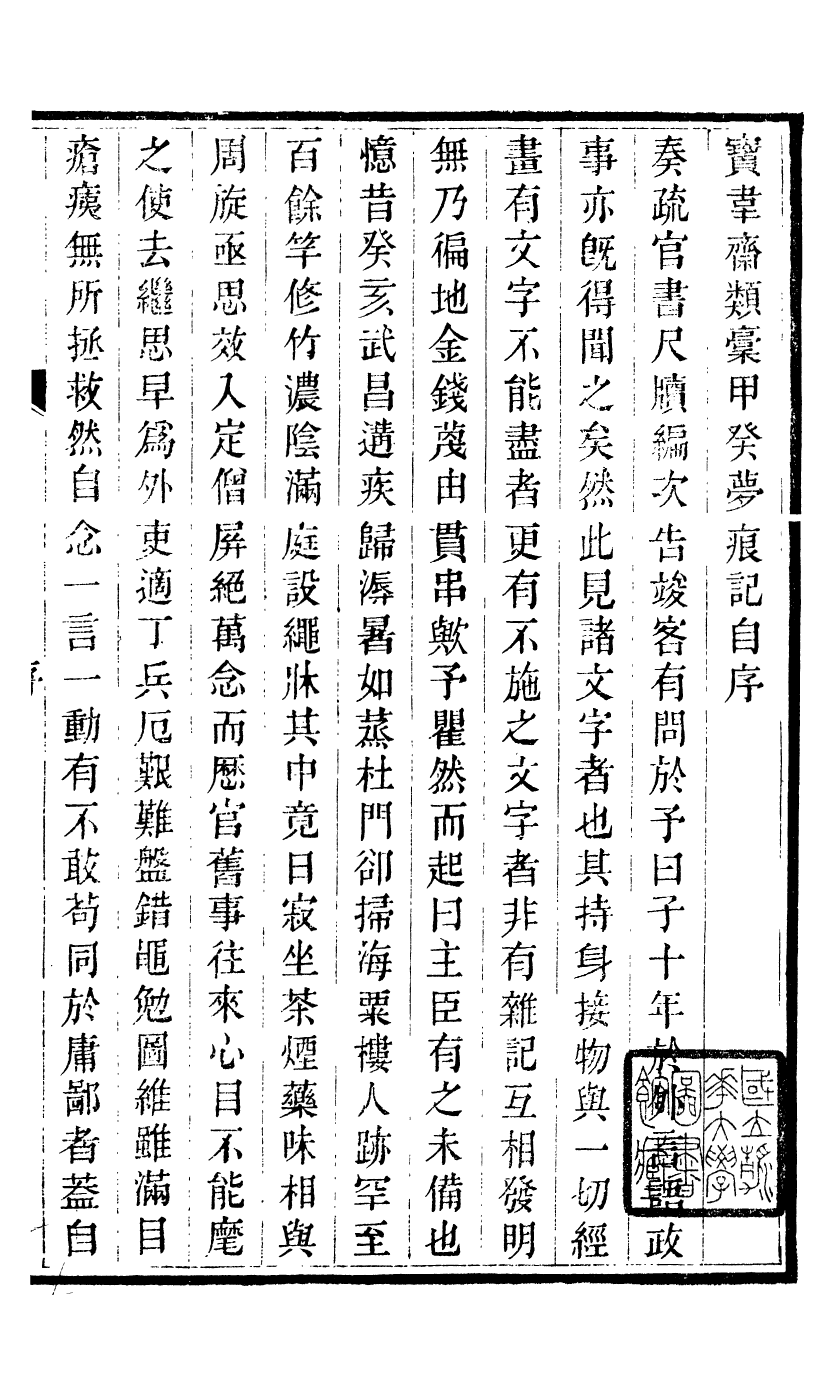 寶韋齋類稾甲癸夢痕記自序
奏疏官書尺牘編次告竣客有問於予曰子十年於外言語政
事亦既得聞之矣然此見諸文字者也其持身接物與一切經
畫有文字不能盡者更有不施之文字者非有雜記互相發明
無乃徧地金錢蔑由貫串歟予瞿然而起曰主臣有之未備也
憶昔癸亥武昌遘疾歸溽暑如蒸杜門卻掃海粟樓人跡罕至
百餘竿修竹濃陰滿庭設繩牀其中竟日寂坐茶煙藥味相與
周旋亟思效入定僧屏絕萬念而歷官舊事往來心目不能麾
之使去繼思早爲外吏適丁兵厄艱難盤錯黽勉圖維雖滿目
瘡痍無所拯救然自念一言一動有不敢茍同於庸鄙者葢自
序
國立浙
江大學
圖書
館藏